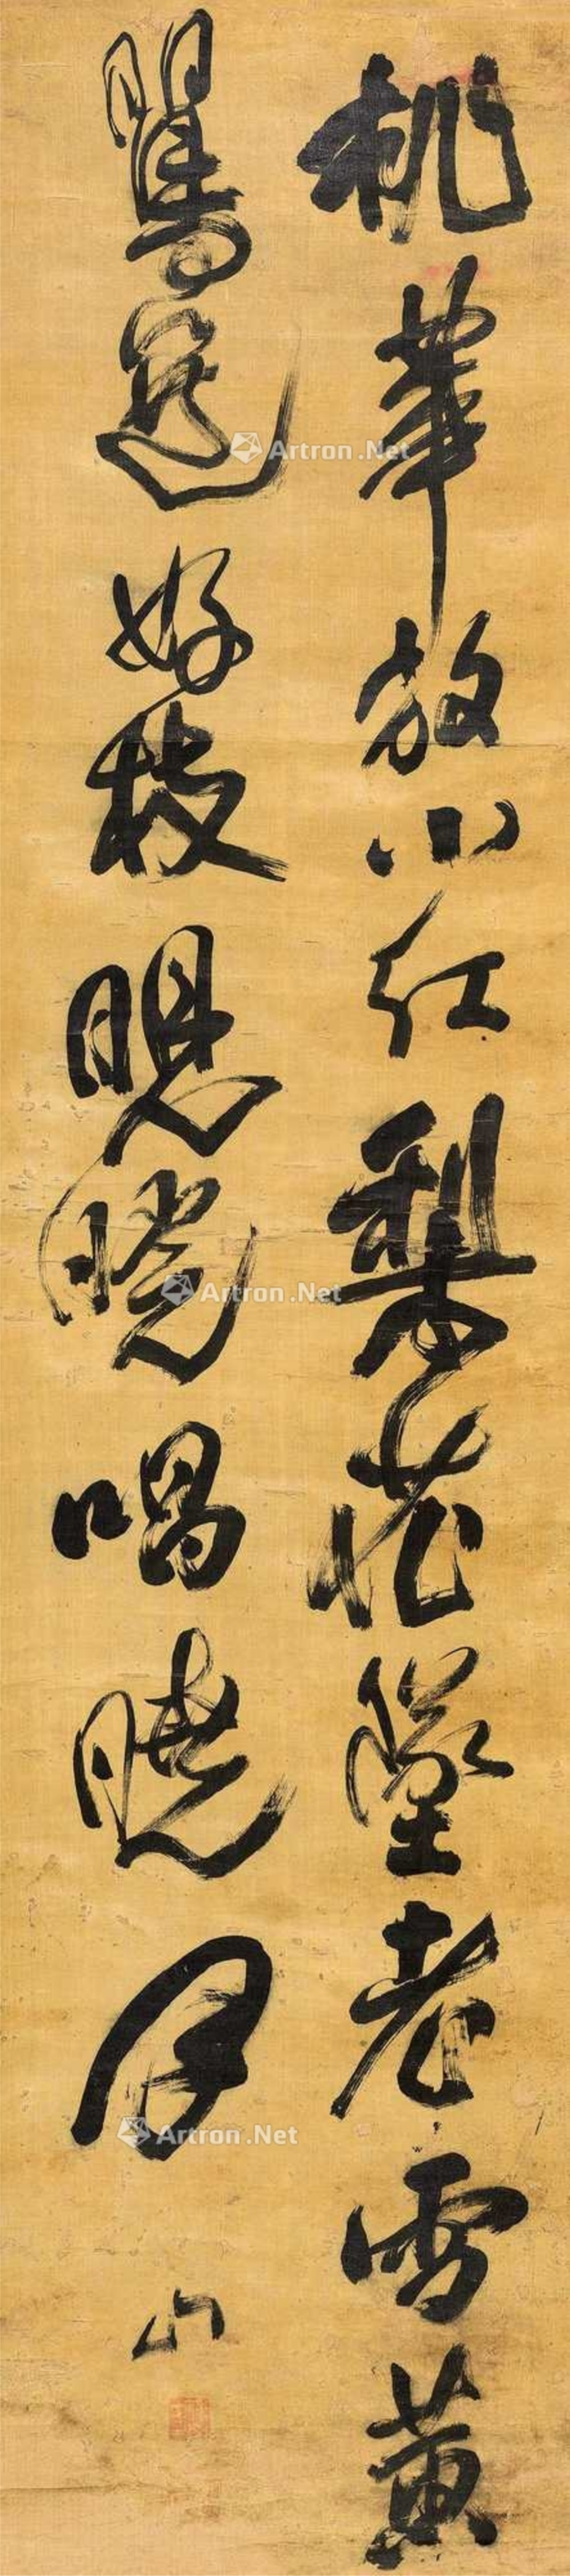 桃華放小紅梨花墜老雪黄
鸎選好枝睍睆唱曉月
山
Artron.Net
Artron.Net
Artron.Net